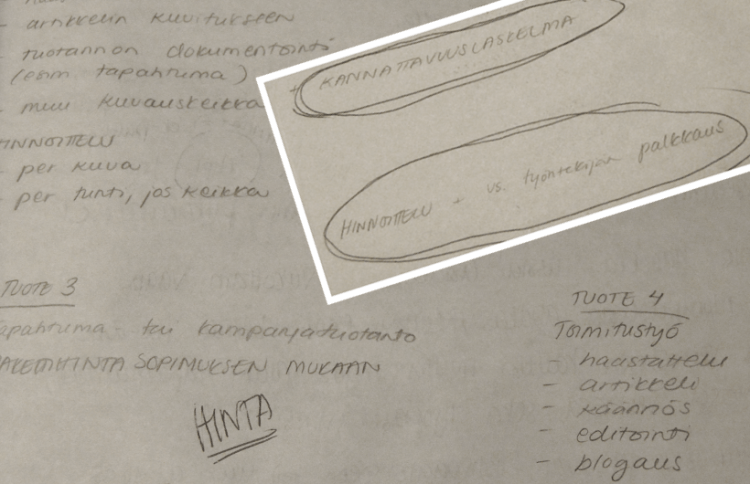 - artikkelin kuvitukseen
- tuotannon dokumentointi
(esim tapahtuma)
- muu kuvauskeikka
HINNOITTELU
- per kuva
- per tunti, jos keikka
TUOTE 3
tapahtuma- tai kampanjatuotanto
SOPIMUKSEN MUKAAN
HINTA
KANNATTAVUUSLASKELMA
HINNOITTELU + vs. työntekijän palkkaus
TUOTE 4
Toimitustyö
- haastattelu
- artikkeli
- käännös
- editointi
- blogaus